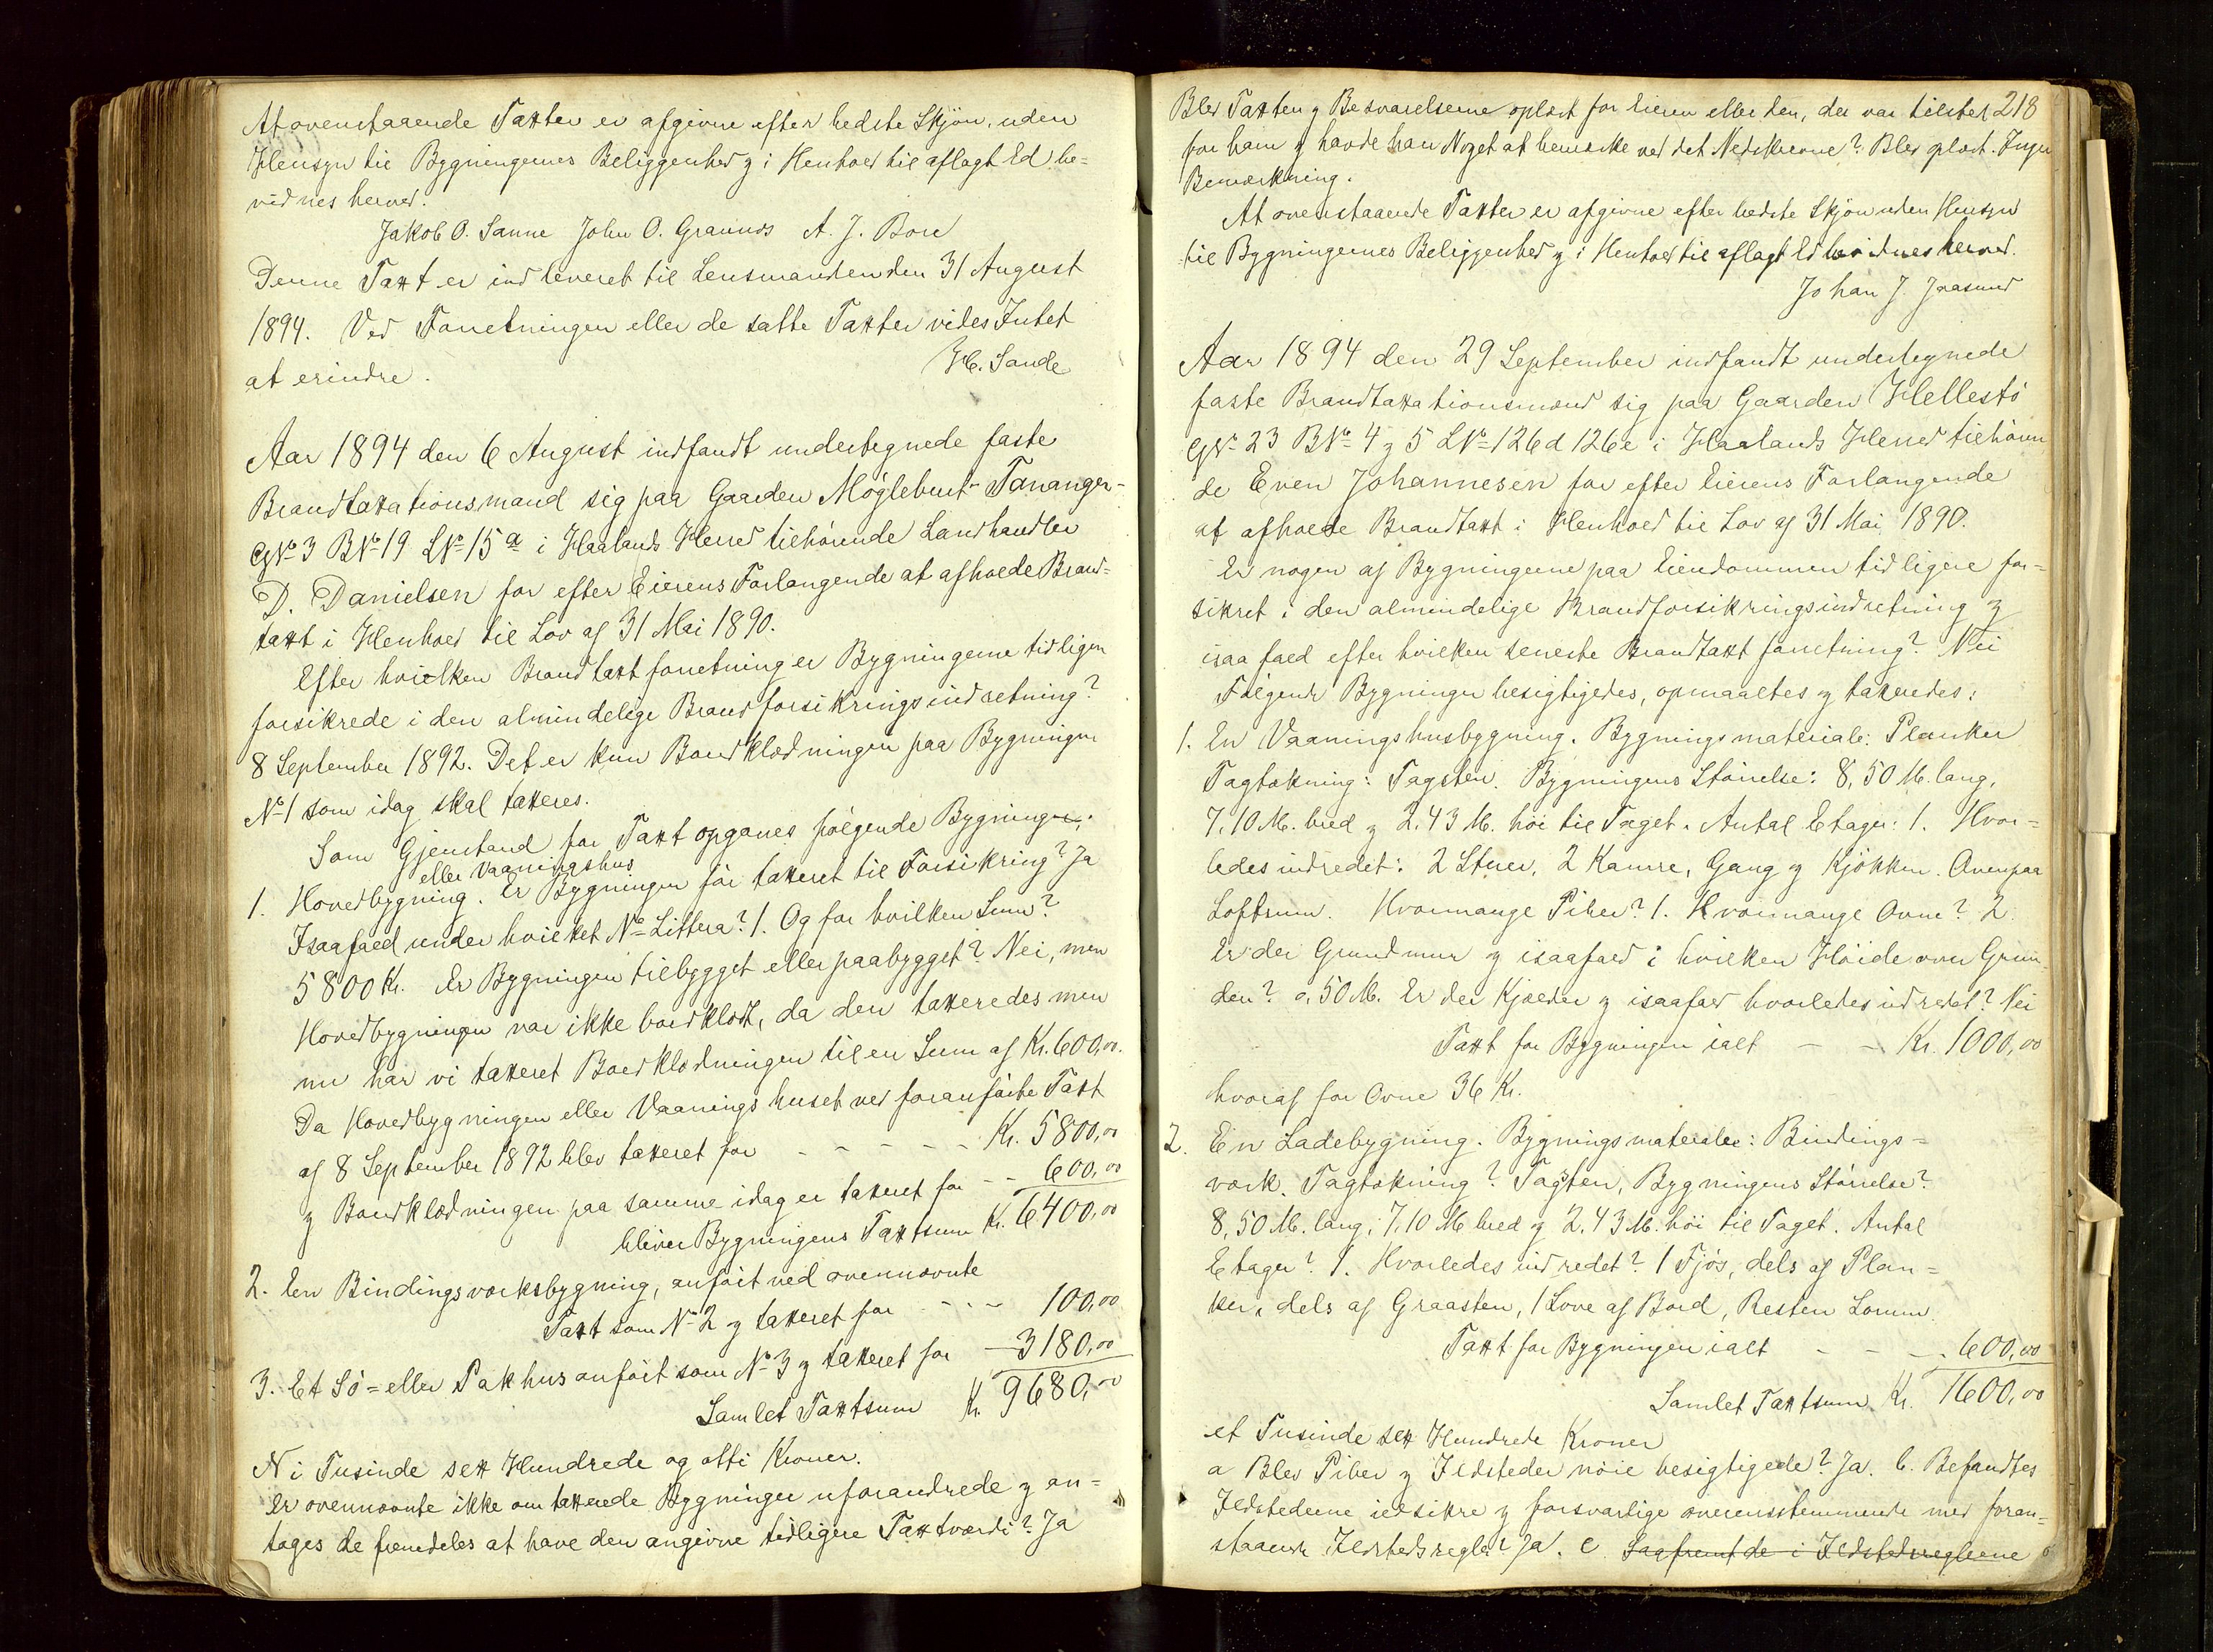 At ovenstaaende Taxter er afgivne efter bedste Skjøn, uden
Hensyn til Bygningernes Beliggenhed og i Henhold til aflagt Ed be=
vidnes herved.
Jakob O. Sanne John O. Grannes A. J. Bore
Denne Taxt er indleveret til Lensmanden den 31 August
1894. Ved Forretningen eller de satte Taxter vides Intet
at erindre.
H. Sande
Aar 1894 den 6 August indfandt undertegnede faste
Brandtaxationsmænd sig paa Gaarden Møglebust-Tananger-
GNo 3 BNo 19 LNo 15a i Haalands Herred tilhørende Landhandler
D. Danielsen for efter Eierens Forlangende at afholde Brand=
taxt i Henhold til Lov af 31 Mai 1890.
Efter hvilken Brandtaxtforretning er Bygningerne tidligere
forsikrede i den almindelige Brandforsikringsindretning?
8 September 1892. Det er kun Bordklædningen paa Bygningen
No 1 som idag skal taxeres.
Som Gjenstand for Taxt opgaves følgende Bygninger:
eller Vaaningshus
1. Hovedbygning. Er Bygningen før taxeret til Forsikring? Ja
Isaafald under hvilket No Littera? 1. Og for hvilken Sum?
5800 Kr. Er Bygningen tilbygget eller paabygget? Nei, men
Hovedbygningen var ikke bordklædt, da den taxeredes men
nu har vi taxeret Bordklædningen til en Sum af Kr. 600,00.
Da Hovedbygningen eller Vaaningshuset ved foranførte Taxt
af 8 September 1892 blev taxeret for - - - - Kr. 5800,00
og Bordklædningen paa samme idag er taxeret for - - 600,00
bliver Bygningens Taxtsum Kr. 6400,00
2. En Bindingsværksbygning, anført ved ovennævnte
Taxt som No 2 og taxeret for - - - 100,00
3. Et Sø= eller Pakhus anført som No 3 og taxeret for - 3180,00
Samlet Taxtsum Kr. 9680,00
Ni Tusinde sex Hundrede og otti Kroner.
Er ovennævnte ikke omtaxerede Bygninger uforandrede og an=
tages de fremdeles at have den angivne tidligere Taxtværdi? Ja
218
Blev Taxten og Besvarelserne oplæst for Eieren eller den, der var tilstede
for ham og havde han Noget at bemærke ved det Nedskrevne? Blev oplæst. Ingen
Bemærkning.
At ovenstaaende Taxter er afgivne efter bedste Skjøn uden Hensyn
til Bygningernes Beliggenhed og i Henhold til aflagt Ed bevidnes herved.
Johan J. Jaasund
Aar 1894 den 29 September indfandt undertegnede
faste Brandtaxationsmænd sig paa Gaarden Hellestø
GNo 23 BNo 4 og 5 LNo 126d 126e i Haalands Herred tilhøren
de Even Johannesen for efter Eierens Forlangende
at afholde Brandtaxt i Henhold til Lov af 31 Mai 1890.
Er nogen af Bygningerne paa Eiendommen tidligere for=
sikret i den almindelige Brandforsikringsindretning og
isaafald efter hvilken seneste Brandtaxt forretning? Nei
Følgende Bygninger besigtigedes, opmaaltes og taxeredes:
1. En Vaaningshusbygning. Bygningsmateriale: Planker
Tagtækning: Tagsten. Bygningens Størrelse: 8,50 M. lang,
7,10 M. bred og 2,43 M. høi til Taget. Antal Etager: 1. Hvor=
ledes indredet: 2 Stuer, 2 Kamre, Gang og Kjøkken. Ovenpaa
Loftsrum. Hvormange Piber? 1. Hvormange Ovne? 2.
Er der Grundmur og isaafald i hvilken Høide over Grun
den? 0,50 M. Er der Kjælder og isaafald hvorledes indredet? Nei
Taxt for Bygningen ialt - - Kr. 1000,00
hvoraf for Ovne 36 Kr.
2. En Ladebygning. Bygningsmateriale: Bindings=
værk. Tagtækning? Tagsten, Bygningens Størrelse?
8,50 M. lang, 7,10 M bred og 2,43 M. høi til Taget. Antal
Etager? 1. Hvorledes indredet? 1 Fjøs, dels af Plan=
ker, dels af Graasten, 1 Love af Bord, Resten Lørum
Taxt for Bygningen ialt - - - 600,00
Samlet Taxtsum Kr. 1600,00
et Tusinde sex Hundrede Kroner
a Blev Piber og Ildsteder nøie besigtigede? Ja. b. Befandtes
Ildstederne ildsikre og forsvarlige overensstemmende med foran=
staaende Ildstedsregler? Ja. c. Saafremt de i Ildstedsreglerne